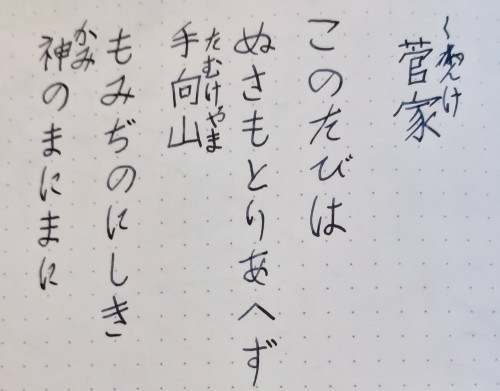 菅家
くわんけ
このたびは
ぬさもとりあへず
手向山
たむけやま
もみぢのにしき
神のまにまに
かみ